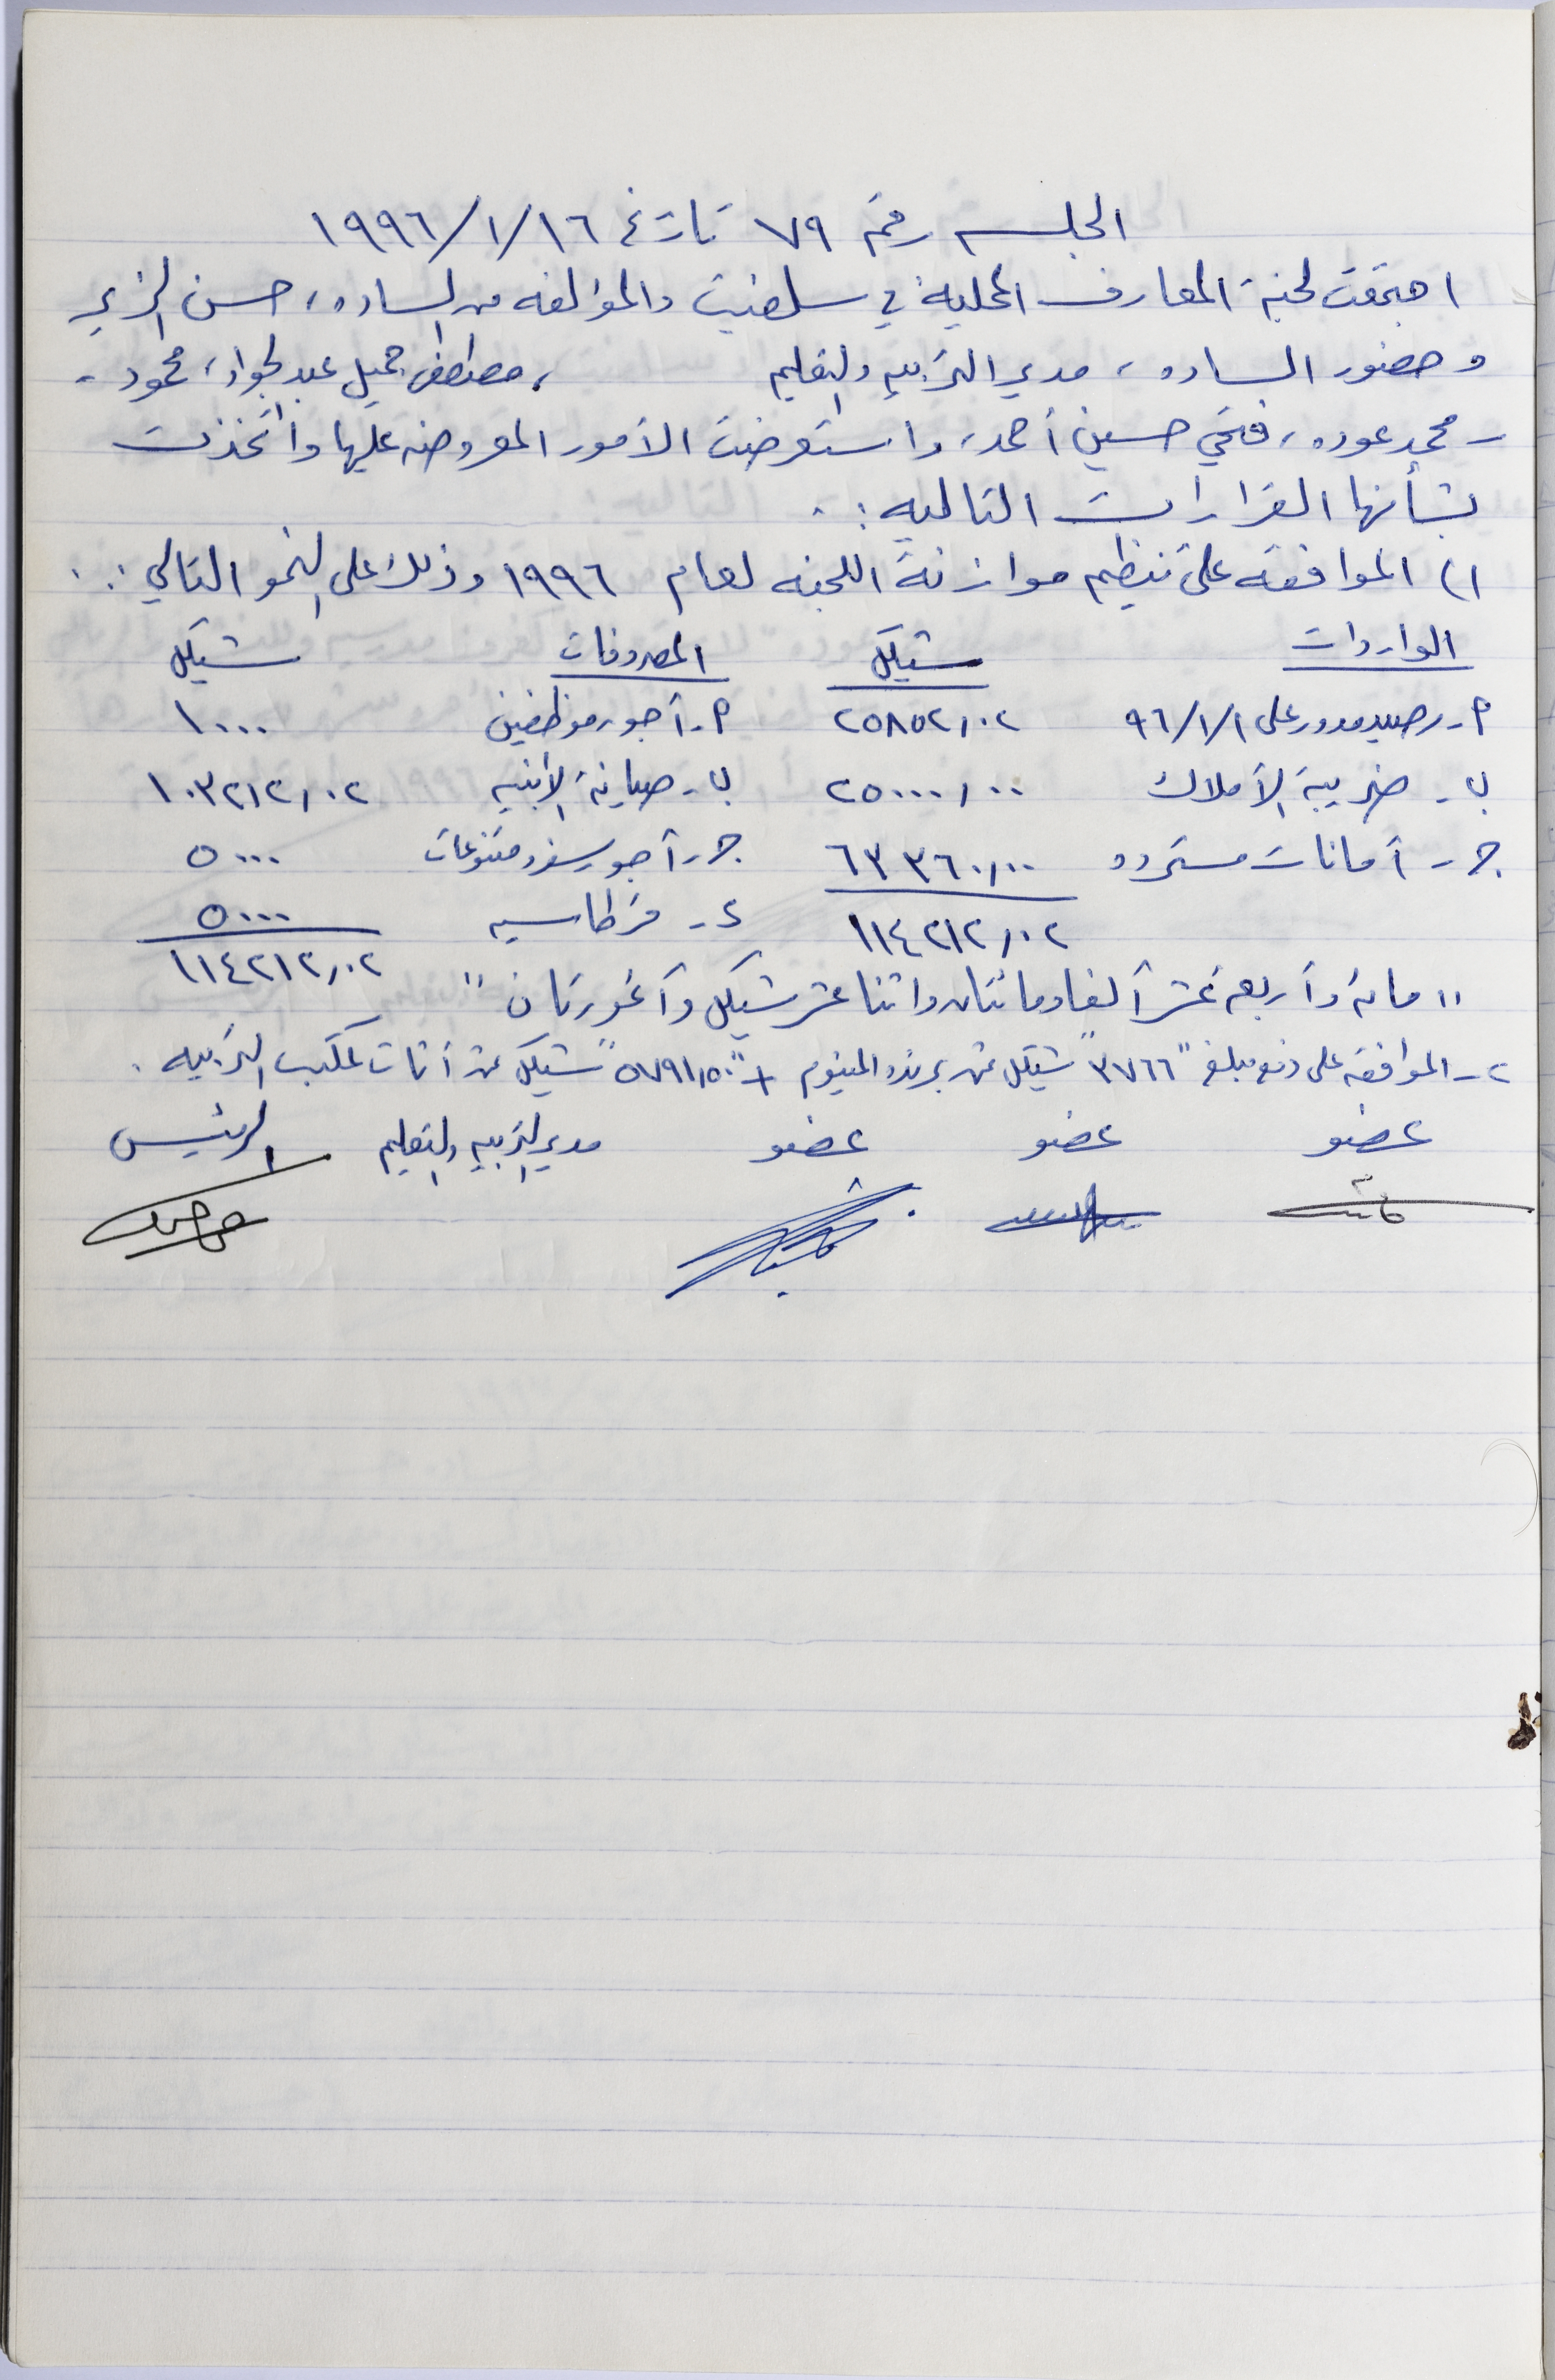 الجلسه رقم ٧٩ تاريخ ١٩٩٦/١/١٦
اجتمعت لجنة المعارف المحلية في سلفيت والمؤلفه من الساده، حسن الزير
وحضور الساده، مدير التربيه والتعليم ، مصطفى جميل عبد الجواد، محمود -
- محمد عوده، فتحي حسين أحمد، واستعرضت الأمور المعروضه عليها واتخذت
بشأنها القرارات التاليه :.
١) الموافقه على تنظيم موازنة اللجنه لعام ١٩٩٦ وذلك على النحو التالي :.
الواردات شيكل المصروفات شيكل
م - رصيد مدور على ٩٦/١/١ ٢٥٨٥٢,٠٢ م - أجور موظفين ١٠٠٠
ب - ضريبة الأملاك ٢٥٠٠٠,٠٠ ب - صيانة الأبنيه ١٠٣٢١٢,٠٢
ج - أمانات مسترده ٦٣٣٦٠,٠٠ ج - أجور سفر ومتنوعات ٥٠٠٠
١١٤٢١٢,٠٢ د - قرطاسيه ٥٠٠٠
١١٤٢١٢,٠٢
"مائة وأربعة عشر ألفا ومائتان واثنا عشر شيكل وآغورتان"
٢ - الموافقه على دفع مبلغ "٣٧٦٦" شيكل ثمن برنده المنيوم + "٥٧٩١,٥٠" شيكل ثمن أثاث لمكتب التربيه .
عضو عضو عضو مدير التربيه والتعليم الرئيس